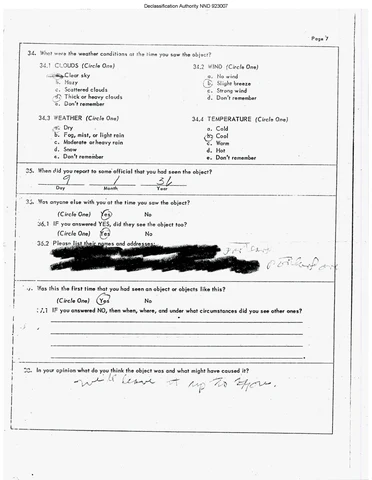 Declassification Authority NND 923007
Page 7
34. What were the weather conditions at the time you saw the object?
34.1 CLOUDS (Circle One)
a. Clear sky
b. Hazy
c. Scattered clouds
d. Thick or heavy clouds
e. Don't remember
34.2 WIND (Circle One)
a. No wind
b. Slight breeze
c. Strong wind
d. Don't remember
34.3 WEATHER (Circle One)
a. Dry
b. Fog, mist, or light rain
c. Moderate or heavy rain
d. Snow
e. Don't remember
34.4 TEMPERATURE (Circle One)
a. Cold
b. Cool
c. Warm
d. Hot
e. Don't remember
35. When did you report to some official that you had seen the object?
9 1 56
Day Month Year
36. Was anyone else with you at the time you saw the object?
(Circle One) Yes No
36.1 IF you answered YES, did they see the object too?
(Circle One) Yes No
36.2 Please list their names and addresses:
Was this the first time that you had seen an object or objects like this?
(Circle One) Yes No
37.1 IF you answered NO, then when, where, and under what circumstances did you see other ones?
38. In your opinion what do you think the object was and what might have caused it?
we'll leave it up to you.